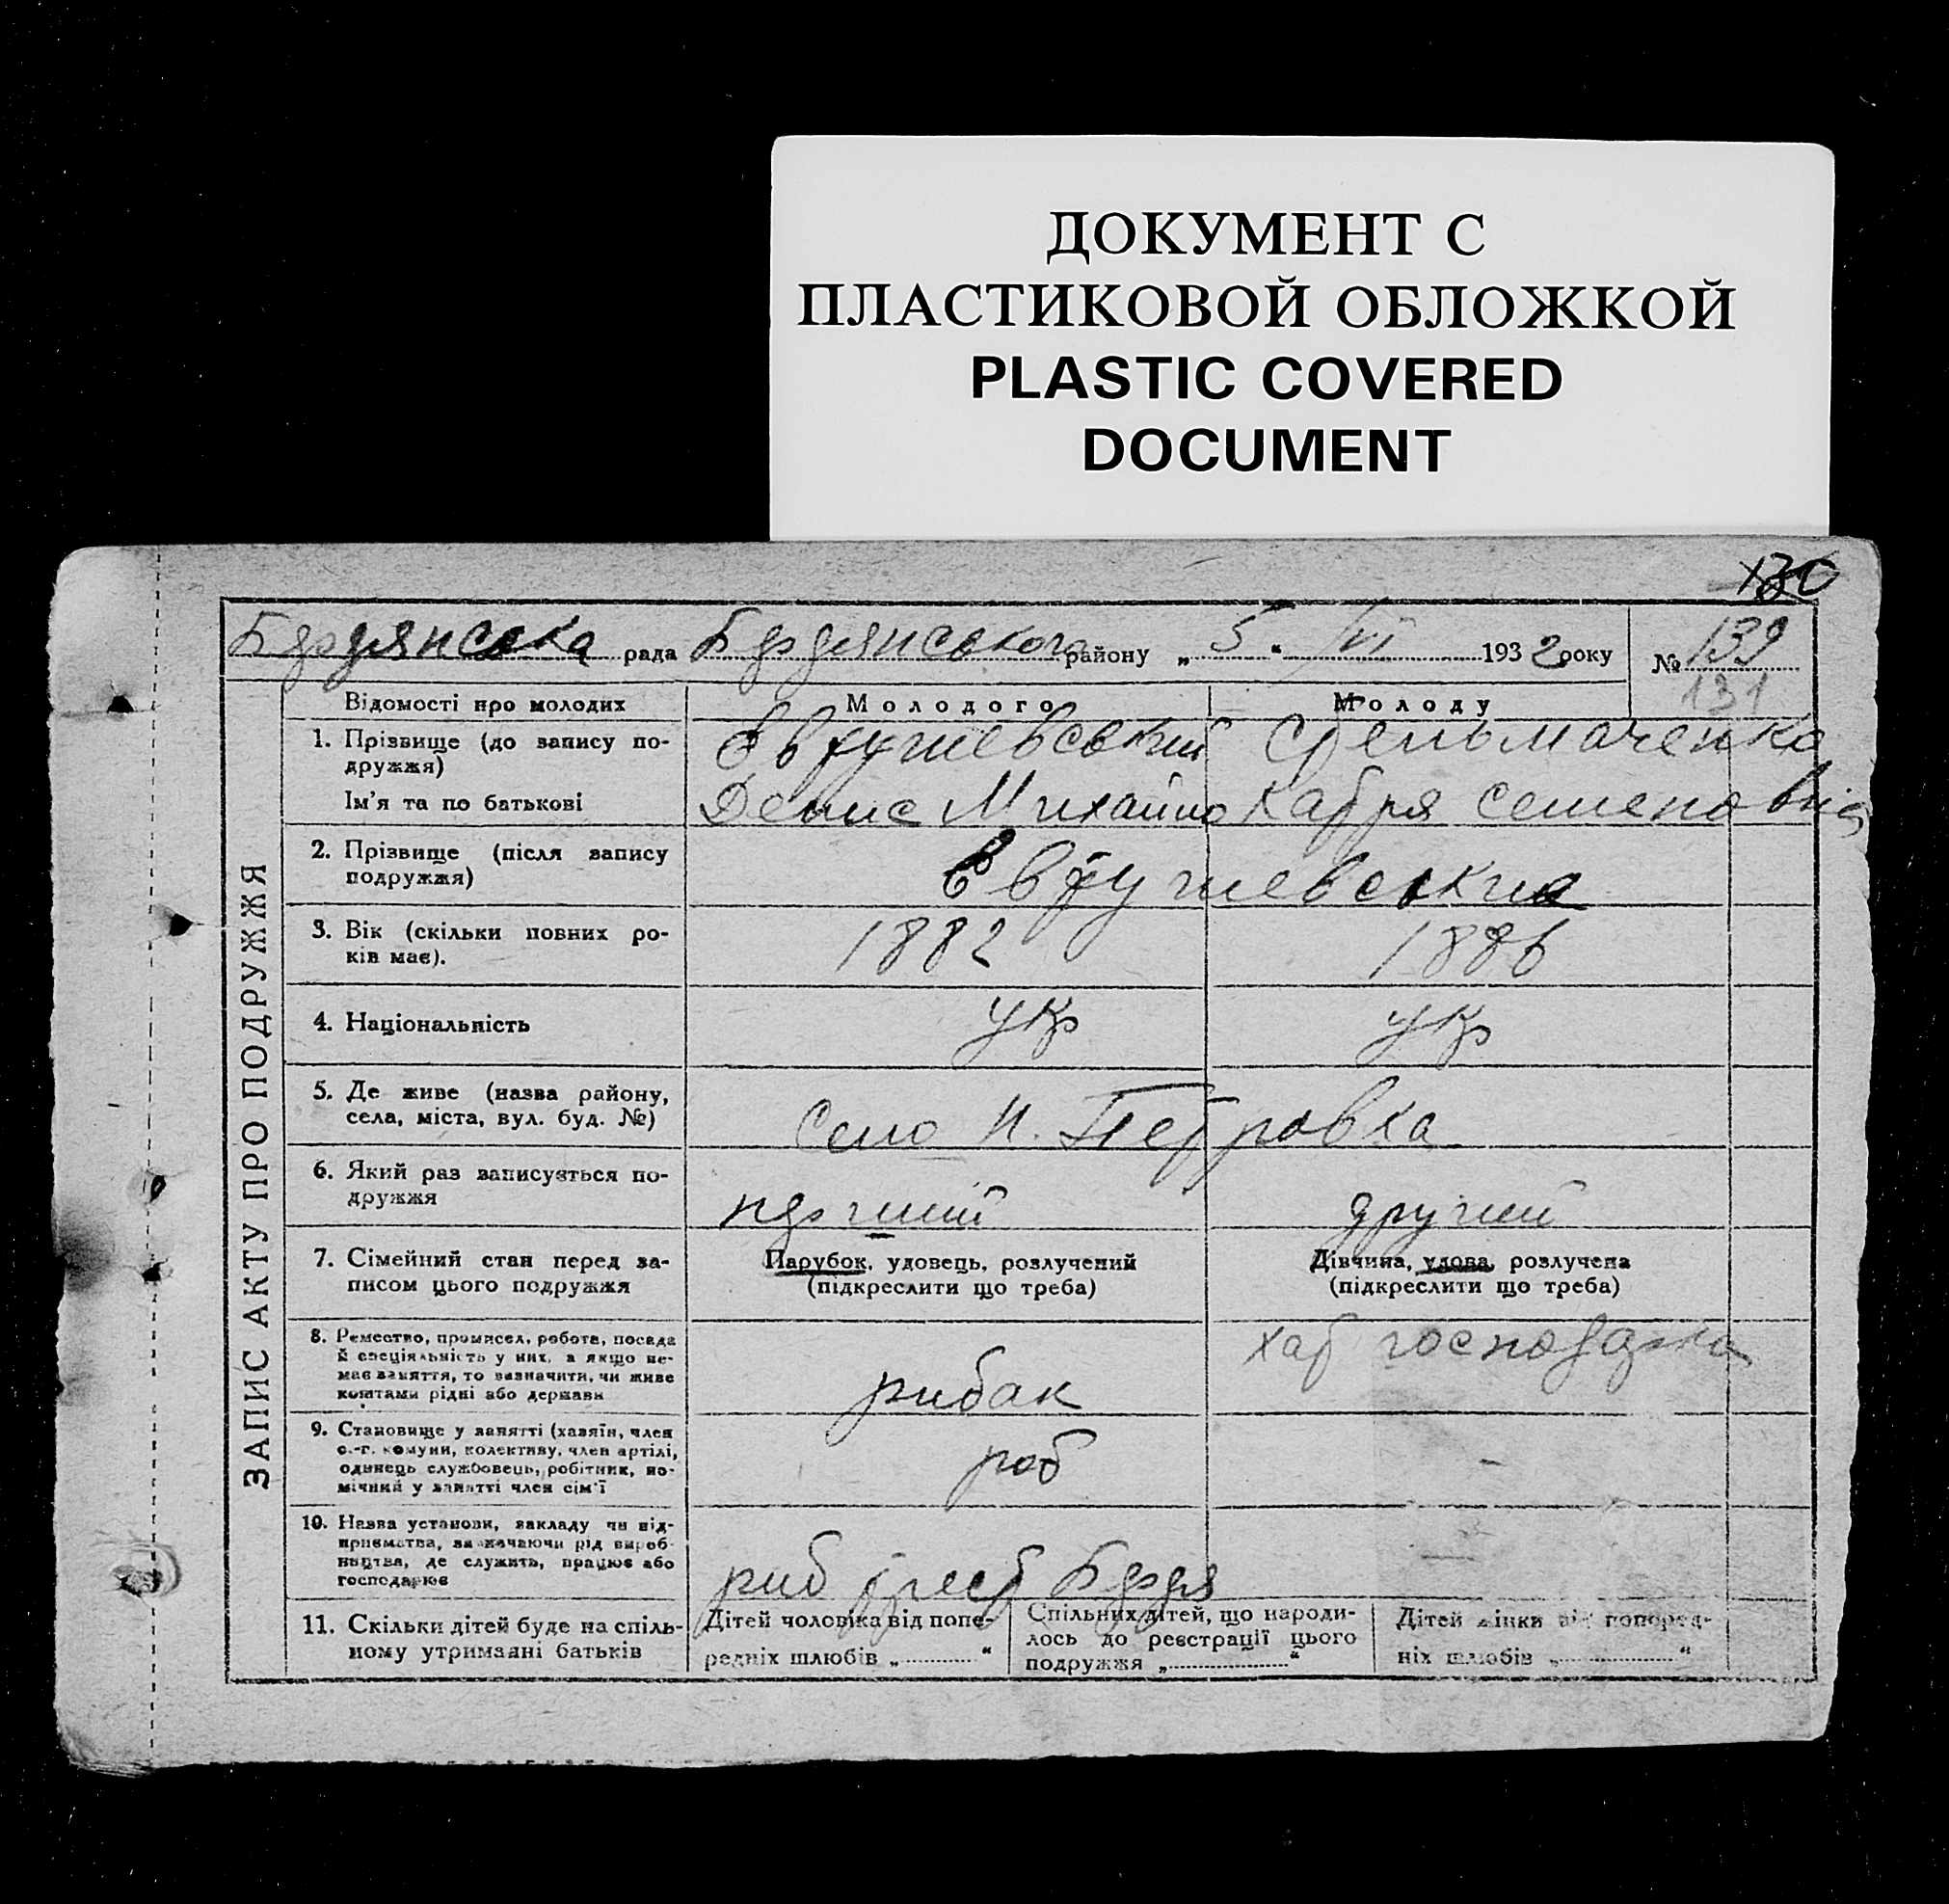 ДОКУМЕНТ С
ПЛАСТИКОВОЙ ОБЛОЖКОЙ
PLASTIC COVERED
DOCUMENT
130
Бердянська рада Бердянського району „5“ VI 1932 року № 139
131
ЗАПИС АКТУ ПРО ПОДРУЖЖЯ
Відомості про молодих Молодого Молоду
1. Прізвище (до запису по-
дружжя)
Ім'я та по батькові Денис Михайло Семеновна
2. Прізвище (після запису
подружжя)
3. Вік (скільки повних ро- 1882 1886
ків має).
4. Національність укр укр
5. Де живе (назва району,
села, міста, вул. буд. №) село Н. Петровка
6. Який раз записується по-
дружжя перший другий
7. Сімейний стан перед за- Парубок, удовець, розлучений Дівчина, удова, розлучена
писом цього подружжя (підкреслити що треба) (підкреслити що треба)
8. Ремество, промисел, робота, посада
й спеціяльність у них, а якщо не-
має заняття, то визначити, чи живе
коштами рідні або держави рибак хат господарка
9. Становище у занятті (хазяїн, член
с.-г. комуни, колективу, член артілі,
одинець службовець, робітник, по-
мічний у занятті член сім'ї роб -
10. Назва установи, закладу чи під-
приємства, зазначаючи рід вироб-
ництва, де служить, працює або
господарює риб трест Бердя
11. Скільки дітей буде на спіль-
ному утриманні батьків
Дітей чоловіка від попе-
редніх шлюбів „ “
Спільних дітей, що народи-
лось до реєстрації цього
подружжя „ “
Дітей жінки від поперед-
ніх шлюбів „ “